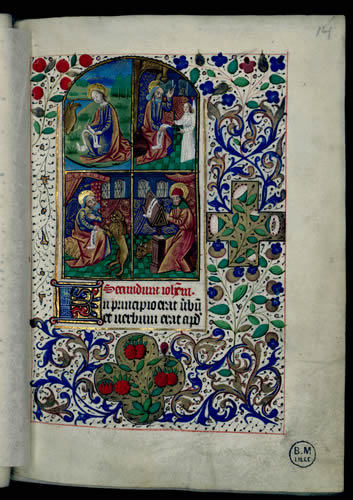 14
Secundum iohem
In principio erat ubu
et uerbum erat apd
B.M
LILLE